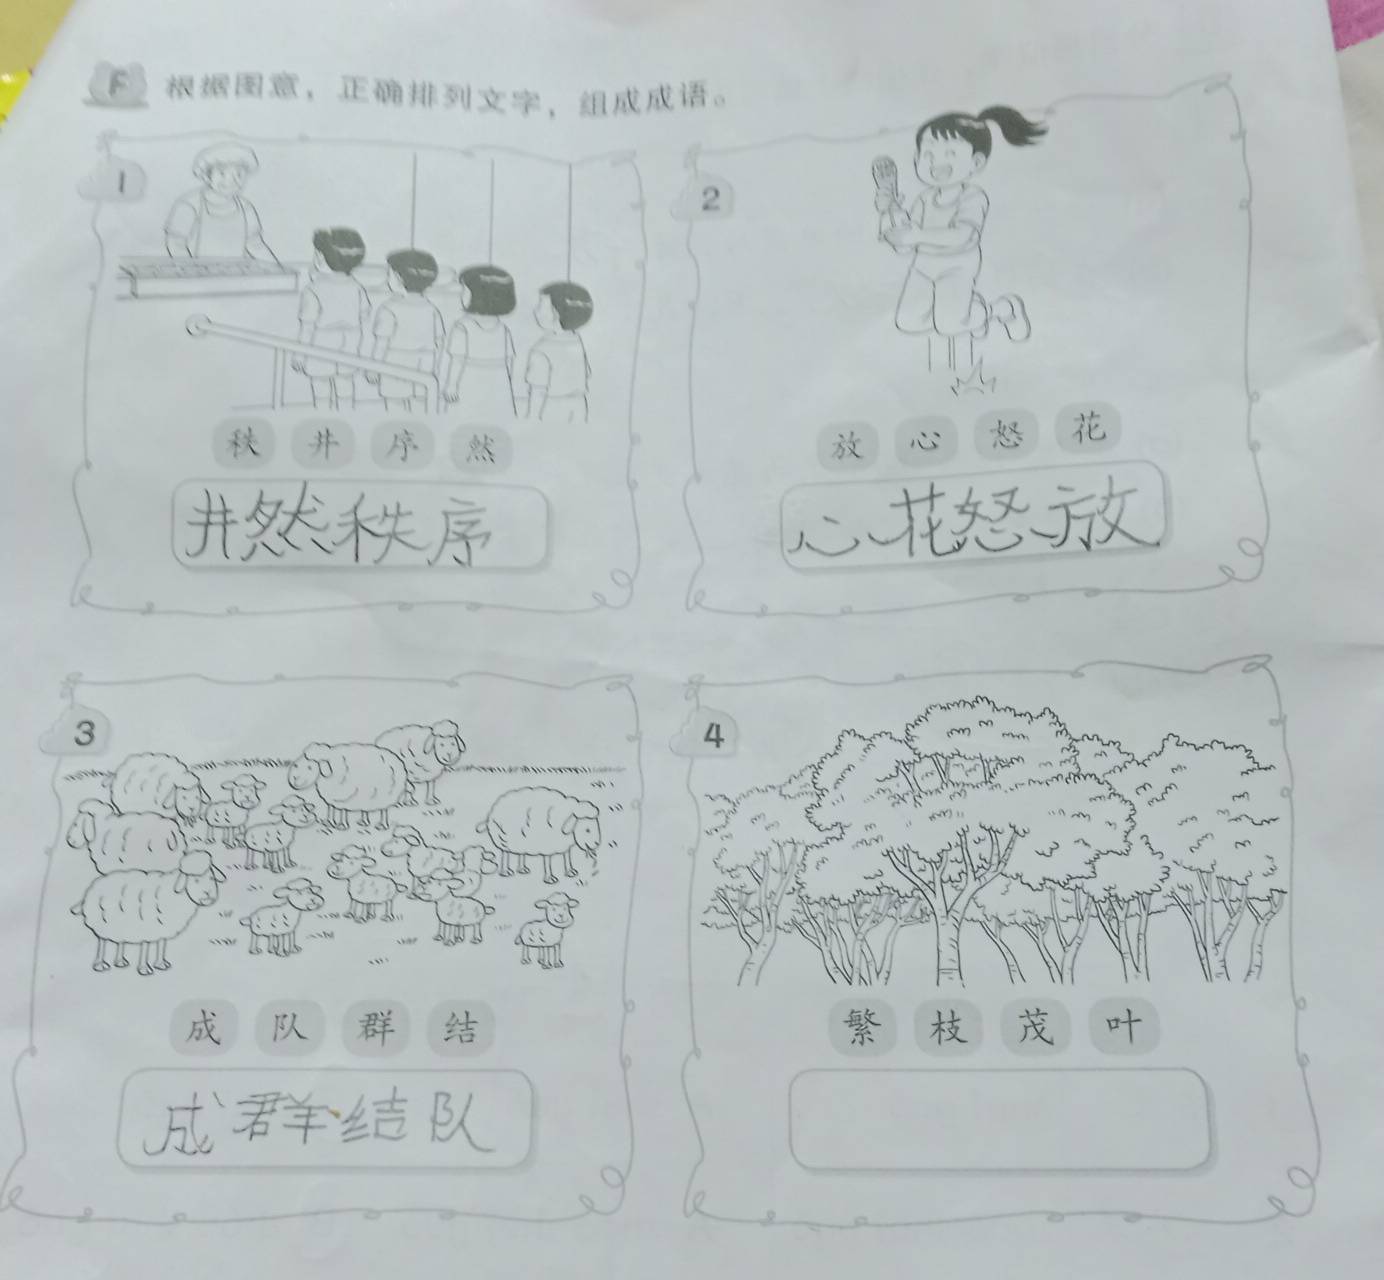 F 根据图意，正确排列文字，组成成语。
1
秩 井 序 然
井然秩序
2
放 心 怒 花
心花怒放
3
成 队 群 结
成群结队
4
繁 枝 茂 叶